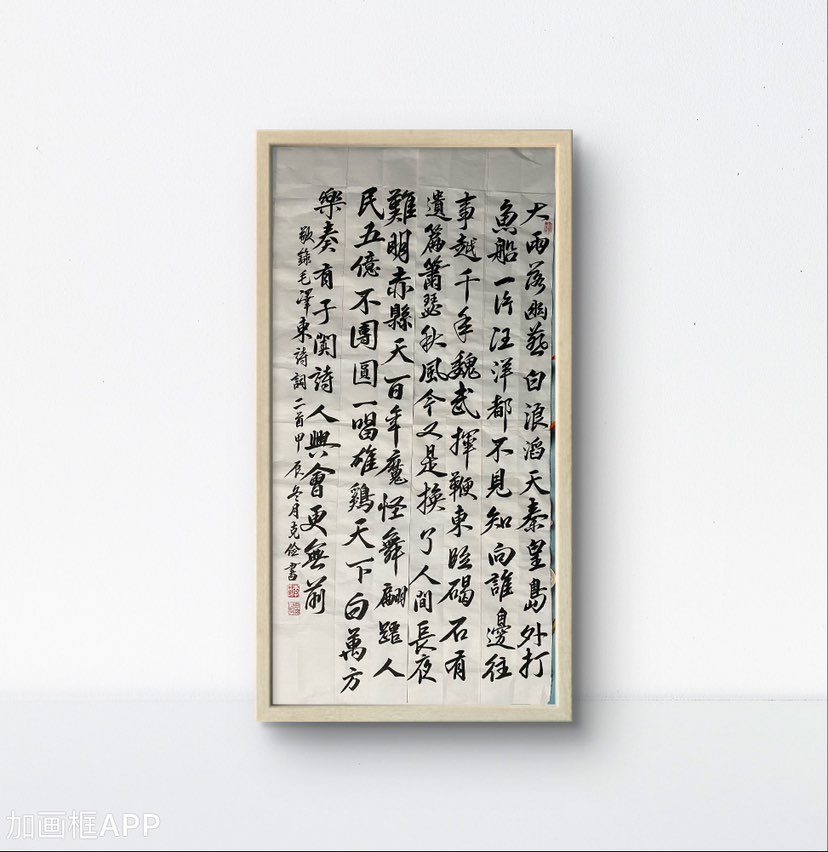 大雨落幽燕白浪滔天秦皇島外打
魚船一片汪洋都不見知向誰邊往
事越千年魏武揮鞭東临碣石有
遺篇簫瑟秋風今又是換了人間長夜
難明赤縣天百年魔怪舞翩躚人
民五億不團圓一唱雄鷄天下白萬方
樂奏有于闐詩人興會更無前
敬錄毛澤東詩詞二首甲辰冬月克俭書
加画框APP